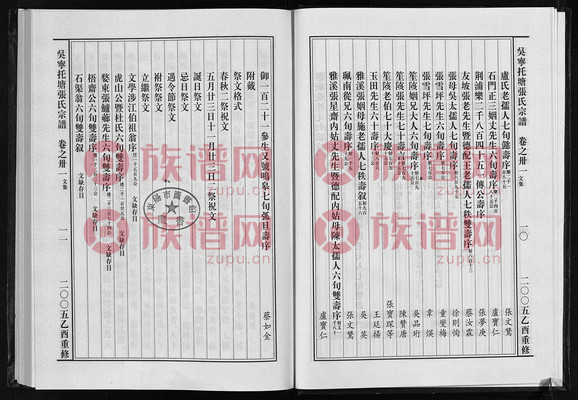 吳寧托塘張氏宗譜 卷之卅一 文集 一〇 二〇〇五乙酉重修
盧氏老孺人七旬懿壽序 張文鷟
石門正三姻丈先生六旬壽序 盧寶仁
荊浦變二千八百四十五 傳公壽序 張夢庚
友坡張老先生暨德配王老孺人七秩雙壽序 蔡汝霖
張母吳太孺人七旬壽序 徐則恂
張雪坪先生六旬壽序 童燮梅
張雪坪先生七旬壽序 韋燚
笙陔張先生七旬壽序 吳品珩
笙陔姻兄大人六旬壽序 陳贊唐
笙陔老伯七十大慶 張寶琛等
玉田先生六十壽序 王廷揚
雅溪張姻母施老孺人七秩壽叙 吳英
珮南從兄六旬壽序 張文鷟
雅溪張星齋內姑丈先生暨德配內姑母陳太孺人六旬雙壽序 盧寶仁
御一百二十一參生又號鳴皋七旬弧旦壽序 蔡如金
附戴
祭文格式
春秋二祭祝文
五月廿三日十一月廿二日二祭祝文
誕日祭文
忌日祭文
遇令節祭文
祔祭文
立繼祭文
文學涉江伯祖翁序 文缺存目
虎山公暨杜氏六旬雙壽序 文缺存目
婺東張鱸藤先生六旬雙壽序 文缺存目
梧齋公六旬雙壽序 文缺存目
石渠翁六旬雙壽叙 文缺存目
吳寧托塘張氏宗譜 卷之卅一 文集 一一 二〇〇五乙酉重修
族谱网
族谱网